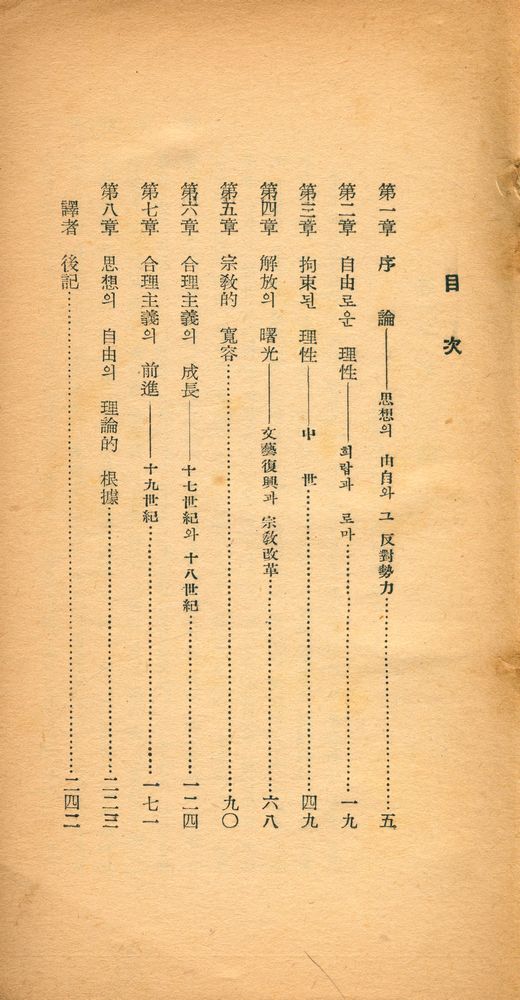 目次
第一章 序 論――思想의 由自와 그 反對勢力……五
第二章 自由로운 理性――희랍과 로마……一九
第三章 拘束된 理性――中 世……四九
第四章 解放의 曙光――文藝復興과 宗敎改革……六八
第五章 宗敎的 寬容……九〇
第六章 合理主義의 成長――十七世紀와 十八世紀……一二四
第七章 合理主義의 前進――十九世紀……一七一
第八章 思想의 自由의 理論的 根據……二二三
譯者 後記……二四二